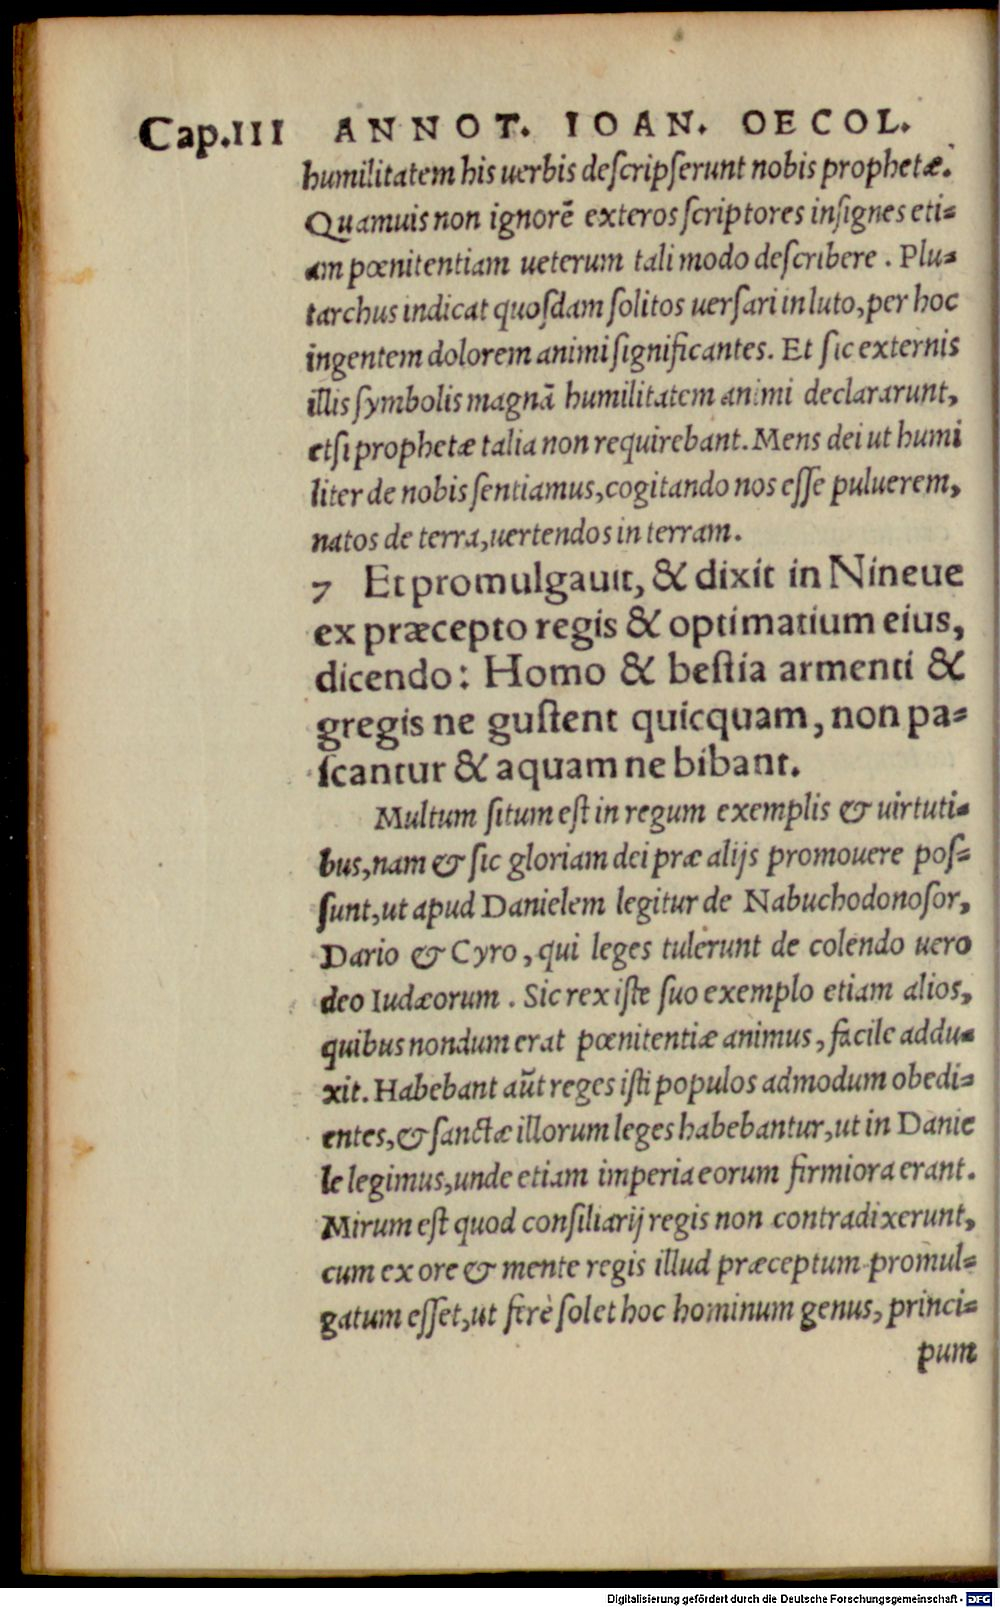 Cap.III ANNOT. IOAN. OECOL.
humilitatem his uerbis deſcripſerunt nobis prophetæ.
Quamuis non ignorē exteros ſcriptores inſignes eti=
am pœnitentiam ueterum tali modo deſcribere. Plu=
tarchus indicat quoſdam ſolitos uerſari in luto, per hoc
ingentem dolorem animi ſignificantes. Et ſic externis
illis ſymbolis magnā humilitatem animi declararunt,
etſi prophetæ talia non requirebant. Mens dei ut humi
liter de nobis ſentiamus, cogitando nos eſſe puluerem,
natos de terra, uertendos in terram.
7 Et promulgauit, & dixit in Nineue
ex præcepto regis & optimatium eius,
dicendo: Homo & beſtia armenti &
gregis ne guſtent quicquam, non pa=
ſcantur & aquam ne bibant.
Multum ſitum eſt in regum exemplis & uirtuti=
bus, nam & ſic gloriam dei præ alijs promouere poſ=
ſunt, ut apud Danielem legitur de Nabuchodonoſor,
Dario & Cyro, qui leges tulerunt de colendo uero
deo Iudæorum. Sic rex iſte ſuo exemplo etiam alios,
quibus nondum erat pœnitentiæ animus, facile addu=
xit. Habebant aūt reges iſti populos admodum obedi=
entes, & ſanctæ illorum leges habebantur, ut in Danie
le legimus, unde etiam imperia eorum firmiora erant.
Mirum eſt quod conſiliarij regis non contradixerunt,
cum ex ore & mente regis illud præceptum promul=
gatum eſſet, ut ferè ſolet hoc hominum genus, princi=
pum
Digitalisierung gefördert durch die Deutsche Forschungsgemeinschaft - DFG